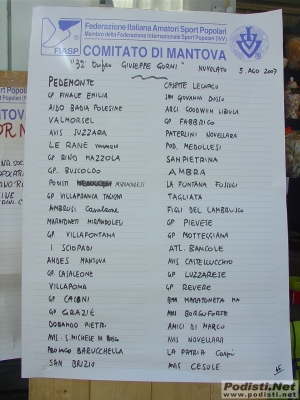 Federazione Italiana Amatori Sport Popolari
Membro della Federazione Internazionale Sport Popolari (IVV)
FIASP
COMITATO DI MANTOVA
"32° Trofeo GIUSEPPE GORNI"
NUVOLATO 5 AGO 2007
PEDEMONTE
GP FINALE EMILIA
AIDO BADIA POLESINE
VALMORSEL
AVIS SUZZARA
LE RANE
GP RINO MAZZOLA
GP. BUSCOLDO
PODISTI MIRANDOLESI
GP. VILLAFRANCA
AMBROSI CASALEONE
MARATONETI MIRANDOLESI
GP VILLAFONTANA
I SCIOPADI
ANDES MANTOVA
GP. CASALEONE
VILLAPOMA
GP CAIONI
GP GRAZIE
DORANDO PIETRI
AVIS S. MICHELE DI BOSCO
PROLOCO BARUCHELLA
SAN BRIZIO
CASETTE LEGNAGO
SAN GIOVANNI DOSSO
ARCI GOODWIN LIBIOLA
GP FABBRICO
PATERLINI NOVELLARA
POD. MEDOLLESI
SAN PIETRINA
AMBRA
LA FONTANA FOSSOLI
TAGLIATA
FIGLI DEL LAMBRUSCO
GP PIEVESE
GP MOTTEGGIANA
ATL. BANCOLE
AVIS CASTELLUCCHIO
GP LUZZARESE
GP REVERE
MARATONETA MN
AVIS BORGOFORTE
AMICI DI MARCO
AVIS NOVELLARA
LA PATRIA CARPI
AVIS CESOLE
Podisti.Net
www.Podisti.Net